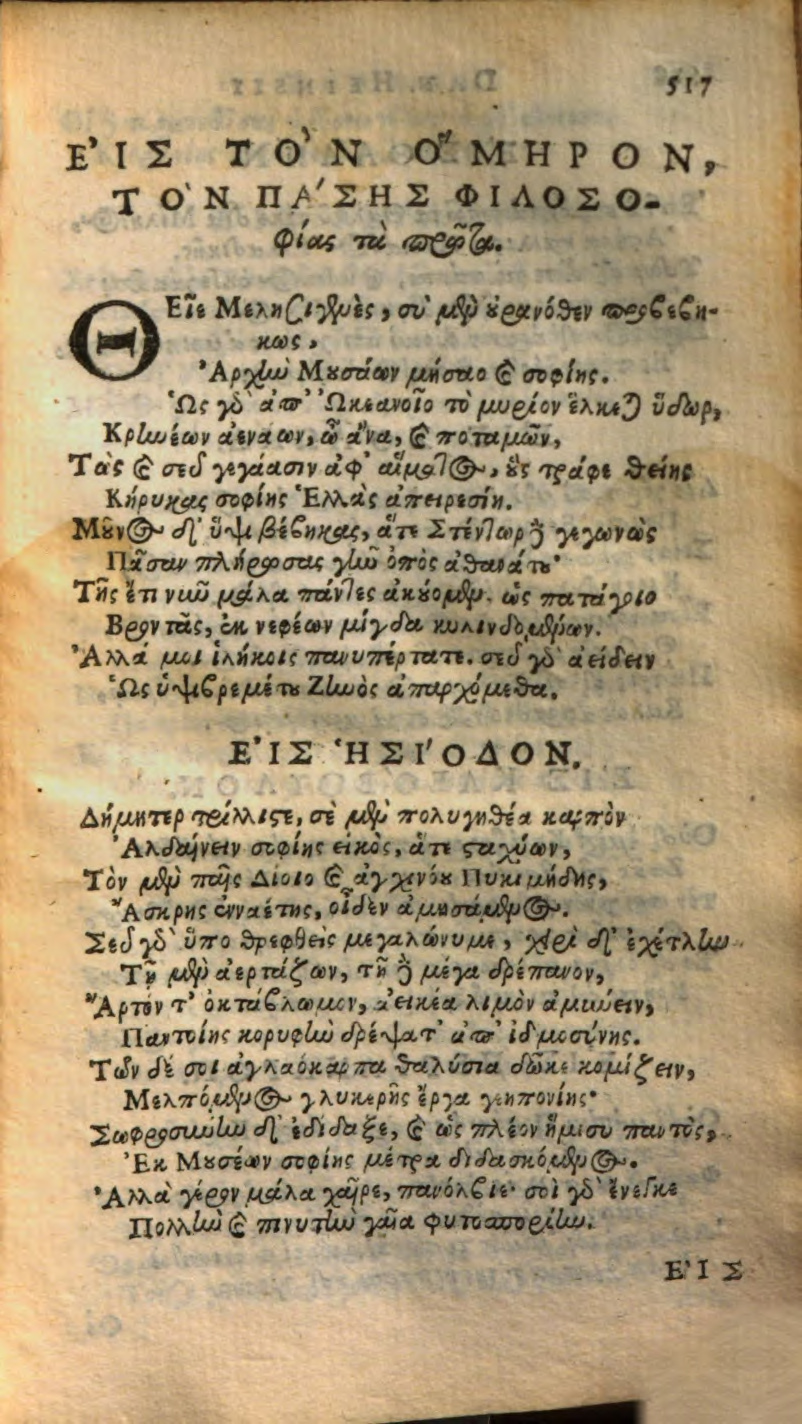 517
ΕἸΣ ΤῸΝ ὍΜΗΡΟΝ,
ΤῸΝ ΠΆΣΗΣ ΦΙΛΟΣΟ-
φίας τὰ πρῶτα.
ΘΕῖε Μελησιγενὲς, σὺ μὲν οὐρανόθεν προβεβη-
κως,
Ἀρχὴν Μουσάων μήσαο καὶ σοφίης.
Ὡς γὰρ ἀπ' Ὠκεανοῖο τὸ μυρίον ἕλκεται ὕδωρ,
Κρηνέων ἀεναων, ὦ ἄνα, καὶ ποταμῶν,
Τὼς καὶ σεῦ γεγάασιν ἀφ' αἵματος, οὓς τράφε θείης
Κήρυκας σοφίης Ἑλλὰς ἀπειρεσίη.
Μοῦνος δ' ὕψι βέβηκας, ἅτε Στέντωρ δὲ γεγωνὼς
Πᾶσαν πλήρωσας γῆν ὀπὸς ἀθανάτου·
Τῆς ἔτι νῦν μάλα πάντες ἀκούομεν. ὡς πατάγοιο
Βροντᾶς, ἐκ νεφέων μίγδα κυλινδομένων.
Ἀλλά μοι ἱλήκοις πανυπέρτατε. σεῦ γὰρ ἀείδειν
Ὡς ὑψιβρεμέτου Ζηνὸς ἀπαρχόμεθα.
ΕἸΣ ἩΣΙΌΔΟΝ.
Δήμητερ τρίλλιστε, σὲ μὲν πολυγηθέα καρπὸν
Ἀλδαήνειν σοφίης εἰκὸς, ἅτε σταχύων,
Τὸν μὲν παῖς Δίοιο καὶ ἀγχινόου Πυκιμήδης,
Ἄσκρης ἐνναέτης, οἶδεν ἀμησάμενος.
Σεῦ γὰρ ὕπο θρεφθεὶς μεγαλώνυμε, χερὶ δ' ἐχέτλην
Τῇ μὲν ἀερτάζων, τῇ δὲ μέγα δρέπανον,
Ἄρτόν τ' ὀκτάβλωμον, ἀεικέα λιμὸν ἀμύνειν,
Παντοίης κορυφὴν δρέψατ' ἀπ' ἰδμοσύνης.
Τῶν δέ σοι ἀγλαόκαρπα θαλύσια δῶκε κομίζειν,
Μελπόμενος γλυκερῆς ἔργα γεηπονίης·
Σωφροσύνην δ' ἐδίδαξε, καὶ ὡς πλέον ἥμισυ παντὸς,
Ἐκ Μουσέων σοφίης μέτρα διδασκόμενος.
Ἀλλὰ γέρον μάλα χαῖρε, πανόλβιε· σοὶ γὰρ ἔνεγκε
Πολλὴν καὶ πινυτὴν γαῖα φυτοσπορίην.
ΕἸΣ